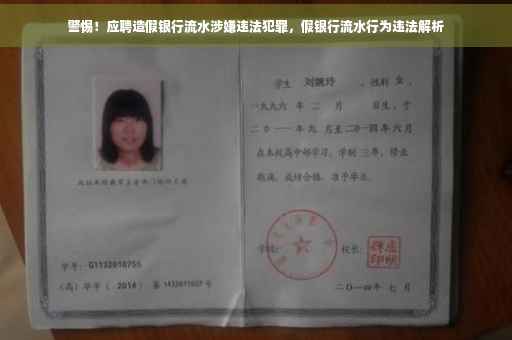 警惕！应聘造假银行流水涉嫌违法犯罪，假银行流水行为违法解析
学生 刘婉玲 ，性别 女 ，
一九九六 年 二 月 日生，于
二〇一一 年 九 月至 二〇一四 年 六 月
在本校高中部学习，学制 三 年，修业
期满，成绩合格，准予毕业。
学校： 校长：
二〇一四年 七 月
学号： G1132010755
（高）毕字（ 2014 ）第 1432011027 号